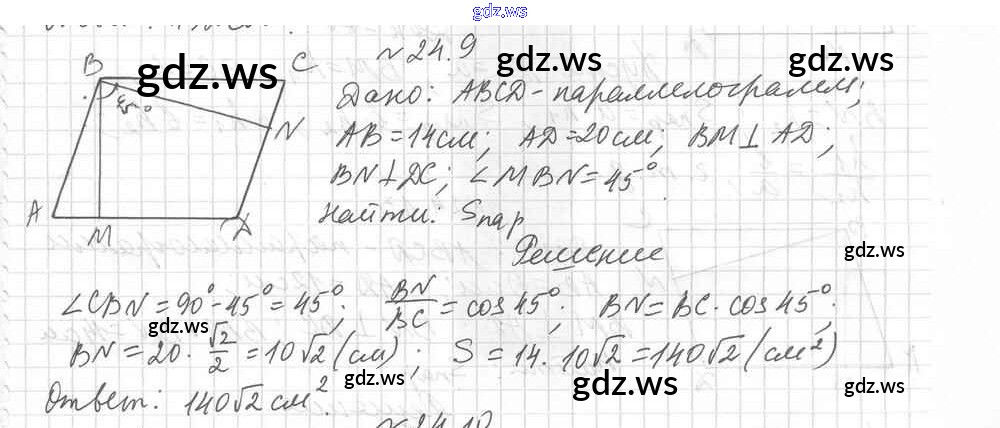 gdz.ws
№ 24.9
B C
gdz.ws gdz.ws gdz.ws
45°
N
A M D
Дано: ABCD - параллелограмм;
AB = 14 см; AD = 20 см; BM ⊥ AD;
BN ⊥ DC; ∠MBN = 45°
Найти: Sпар
Решение
gdz.ws
∠CBN = 90° - 45° = 45°; BN/BC = cos 45°; BN = BC · cos 45°;
gdz.ws
BN = 20 · √2/2 = 10√2 (см); S = 14 · 10√2 = 140√2 (см²)
gdz.ws gdz.ws gdz.ws
Ответ: 140√2 см².
№ 24.10